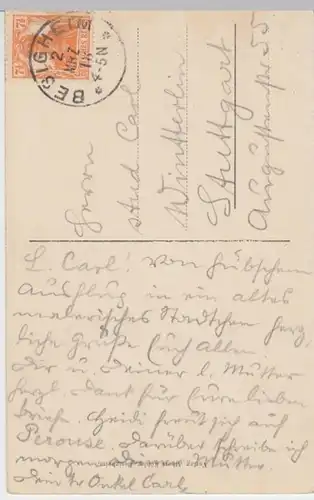 BESIGHEIM
2
MRZ
4-5N
7½
Herrn
stud Carl
Winterlin
Stuttgart
Augustenstr 55
L. Carl! Vom hübschen
Ausflug in ein altes
malerisches Städtchen herz
liche Grüße Euch Allen.
Dir u. Deiner l. Mutter
herzl. Dank für Eure lieben
Briefe. Heidi freut sich auf
Perouse. Darüber schreibe ich
morgen Mutter
Dein Onkel Carl